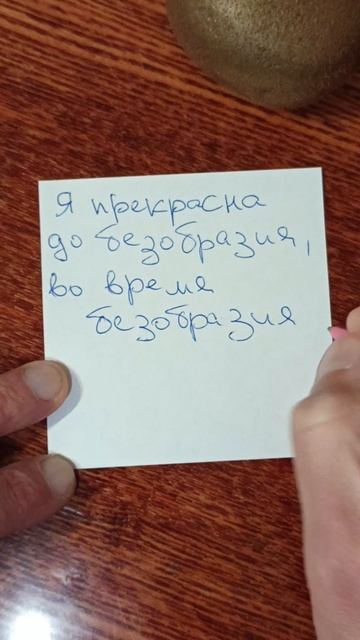 Я прекрасна
до безобразия,
во время
безобразия